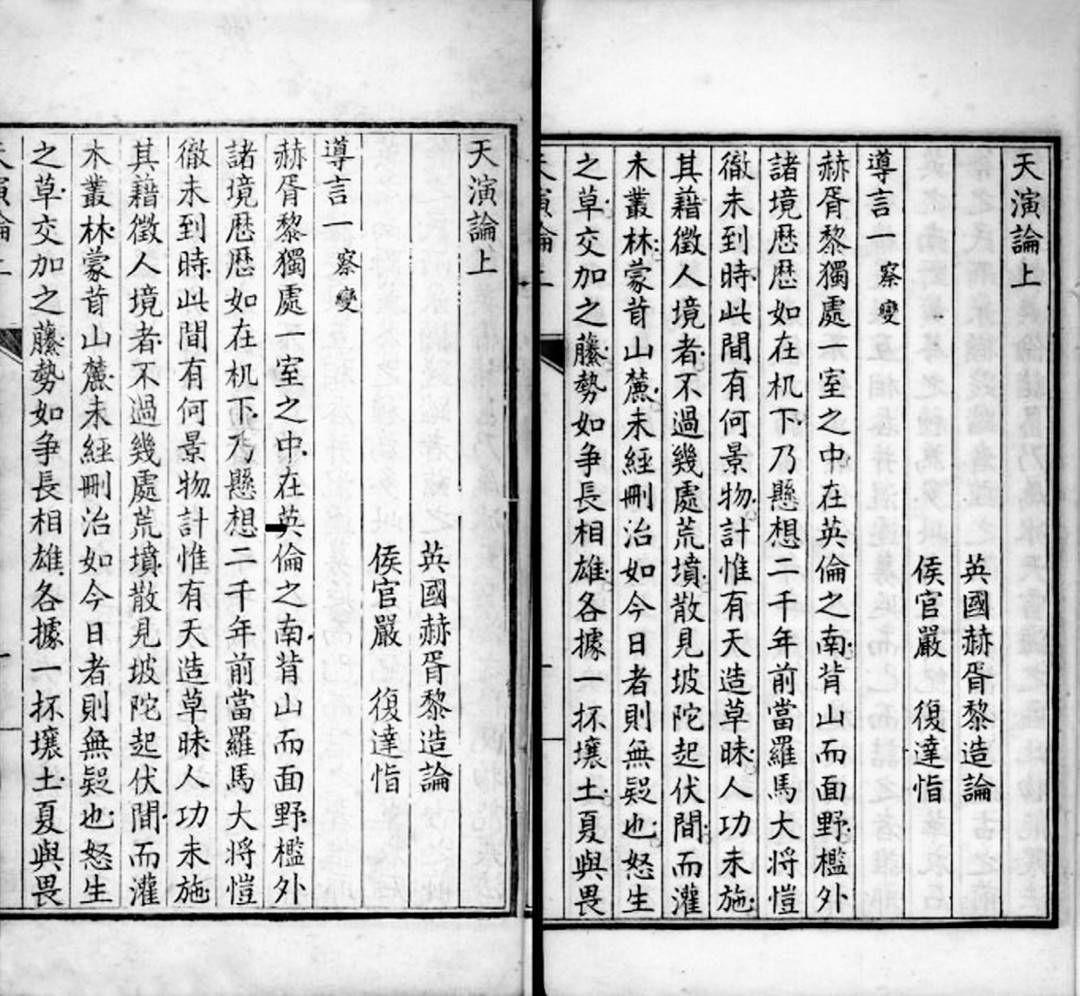 天演論上
英國赫胥黎造論
侯官嚴　復達恉
導言一　察變
赫胥黎獨處一室之中在英倫之南背山而面野檻外
諸境歷歷如在机下乃懸想二千年前當羅馬大將愷
徹未到時此間有何景物計惟有天造草昧人功未施
其藉徵人境者不過幾處荒墳散見坡陀起伏間而灌
木叢林蒙茸山麓未經刪治如今日者則無疑也怒生
之草交加之藤勢如争長相雄各據一抔壤土夏與畏
天演論上
天演論上
英國赫胥黎造論
侯官嚴　復達恉
導言一　察變
赫胥黎獨處一室之中在英倫之南背山而面野檻外
諸境歷歷如在机下乃懸想二千年前當羅馬大將愷
徹未到時此間有何景物計惟有天造草昧人功未施
其藉徵人境者不過幾處荒墳散見坡陀起伏間而灌
木叢林蒙茸山麓未經刪治如今日者則無疑也怒生
之草交加之藤勢如争長相雄各據一抔壤土夏與畏
天演論上